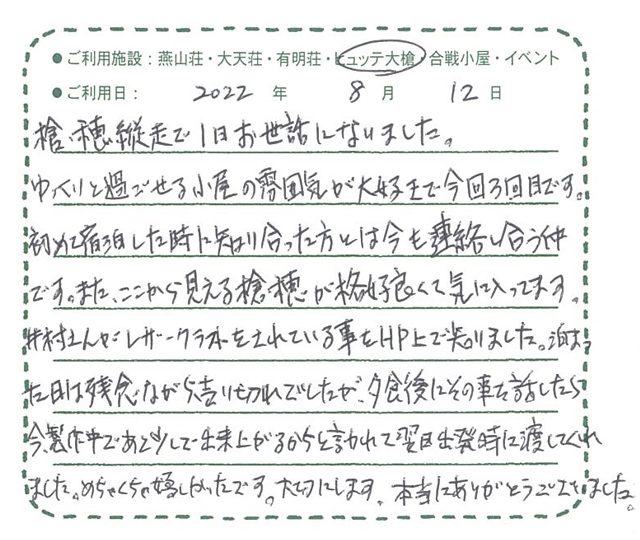 ● ご利用施設：燕山荘・大天荘・有明荘・ヒュッテ大槍・合戦小屋・イベント
● ご利用日： 2022 年 8 月 12 日
槍・穂縦走で1日お世話になりました。
ゆっくりと過ごせる小屋の雰囲気が大好きで今回3回目です。
初めて宿泊した時に知り合った方とは今も連絡し合う仲
です。また、ここから見える槍・穂が格好良くて気に入ってます。
井村さんがレザークラフトをされている事をHP上で知りました。泊まっ
た日は残念ながら売り切れでしたが、夕食後にその事を話したら
今、製作中であと少しで出来上がるからと言われて翌日出発時に渡してくれ
ました。めちゃくちゃ嬉しかったです。大切にします。本当にありがとうございました。